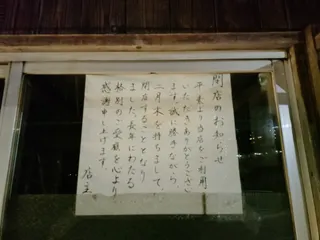 閉店のお知らせ
平素より当店をご利用
いただきありがとうござい
ます。誠に勝手ながら
二月末を持ちまして、
閉店することとなり
ました。長年にわたる
格別のご愛顧を心より
感謝申し上げます。
店主